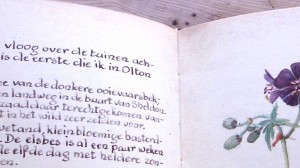 vloog over de tuinen ach-
is de eerste die ik in Olton
ee van de donkere ooievaarsbek;
en landweg in de buurt van Sheldon.
zaad daar terechtgekomen van-
t in het wild zeer zelden voor.
wetand, klein bloemige basterd-
. De elsbes is al een paar weken
de elfde dag met heldere zon-
en.